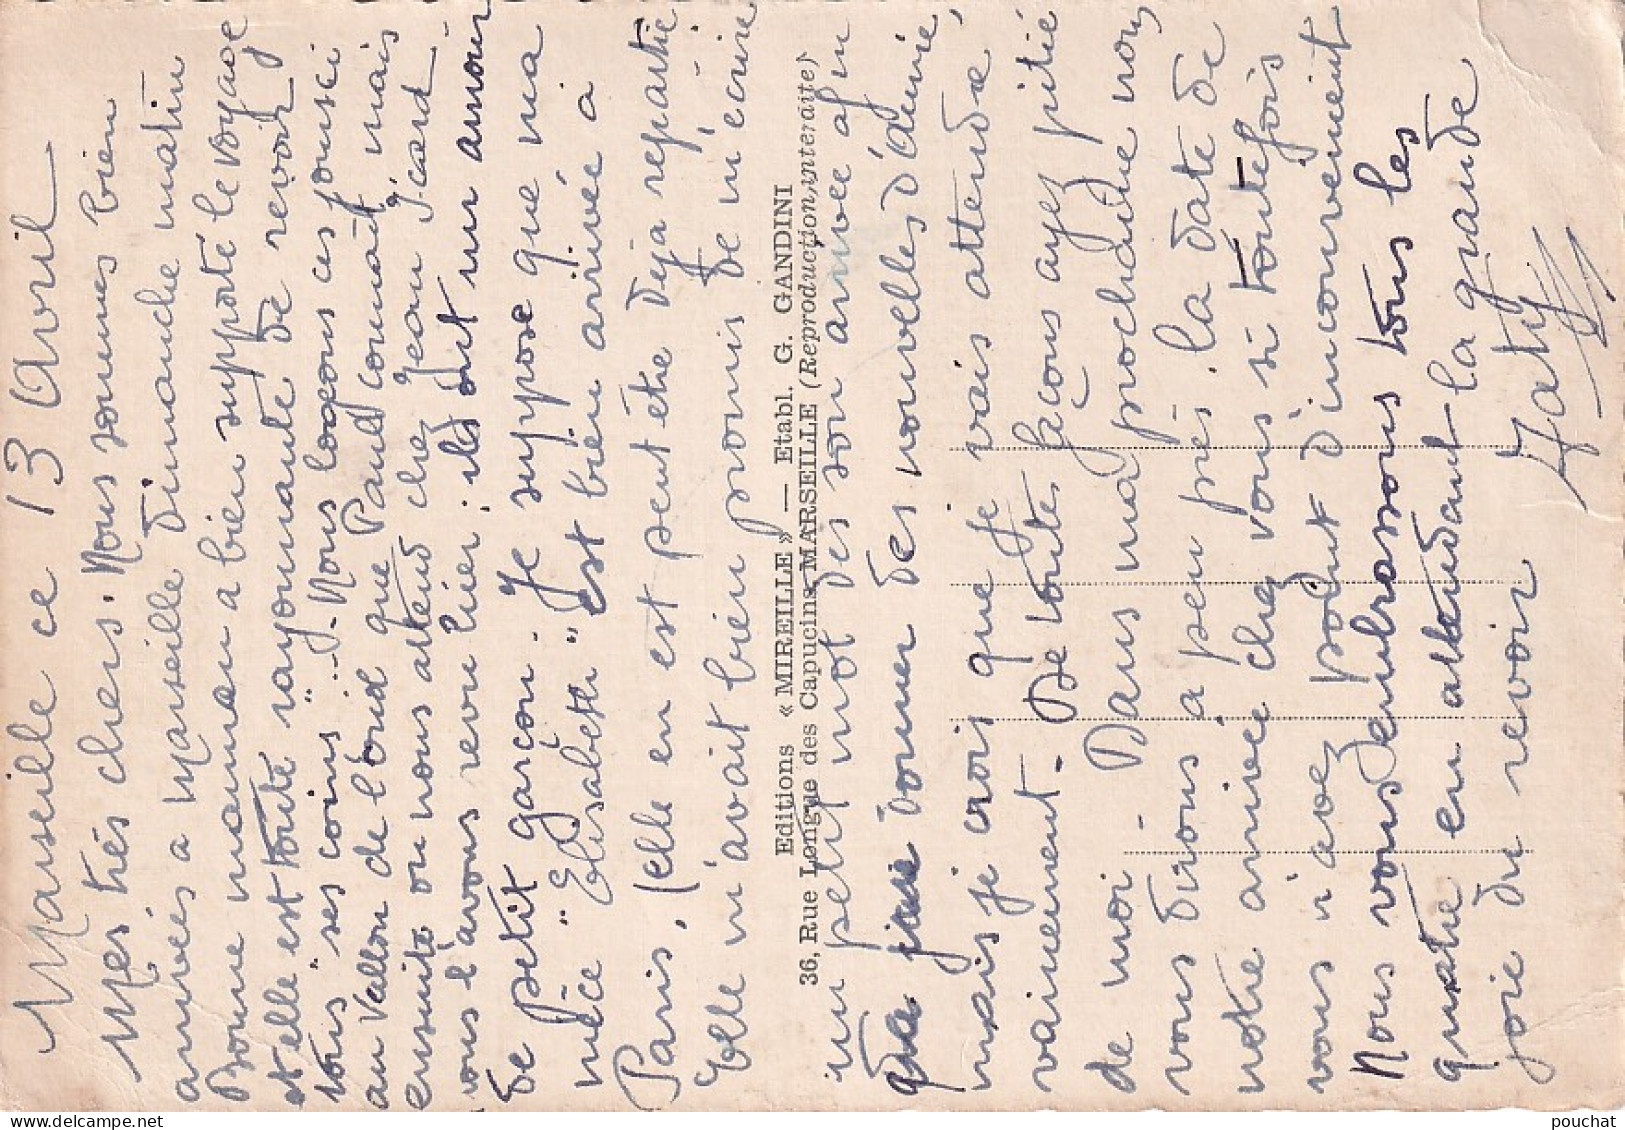 Marseille ce 13 Avril
Mes très chers. Nous sommes bien
arrivés a Marseille Dimanche matin
Bonne maman a bien supporté le voyage
et elle est toute rayonnante de revoir
tous "ses coins"... Nous logeons ces jours ci
au Vallon de l'oud que Paul connait, mais
ensuite on nous attend chez Jean Icard.
nous l'avons revu hier : ils ont un amour
de petit garçon. Je suppose que ma
nièce "Elisabeth" est bien arrivée à
Paris, (elle en est peut être déjà repartie
Elle m'avait bien promis de m'écrire
Editions « MIREILLE » — Etabl. G. GANDINI
36, Rue Longue des Capucins MARSEILLE (Reproduction interdite)
un petit mot dès son arrivée afin
que je donner des nouvelles d'Aimée,
mais je crois que je vais attendre
vainement. De toute façons ayez pitié
de moi - Dans ma prochaine nous
vous dirons a peu près la date de
notre arrivée chez vous si toutefois
vous n'avez point d'inconvenient
Nous vous embrassons tous les
quatre en attendant la grande
joie du revoir
pouchat